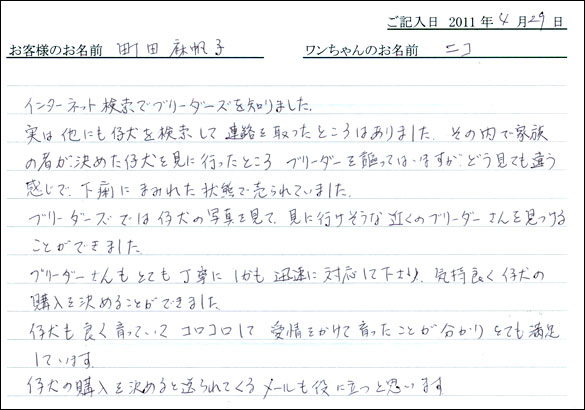 ご記入日 2011 年 4 月 29 日
お客様のお名前 町田 麻帆子 ワンちゃんのお名前 ニコ
インターネット検索でブリーダーズを知りました。
実は他にも仔犬を検索して連絡を取ったところはありました。その内で家族
の者が決めた仔犬を見に行ったところ ブリーダーを謳ってはいますが、どう見ても違う
感じで、下痢にまみれた状態で売られていました。
ブリーダーズでは仔犬の写真を見て、見に行けそうな近くのブリーダーさんを見つける
ことができました。
ブリーダーさんもとても丁寧に しかも迅速に対応して下さり、気持良く仔犬の
購入を決めることができました。
仔犬も良く育っていて コロコロして 愛情をかけて育ったことが分かり とても満足
しています。
仔犬の購入を決めると送られてくるメールも役に立つと思います